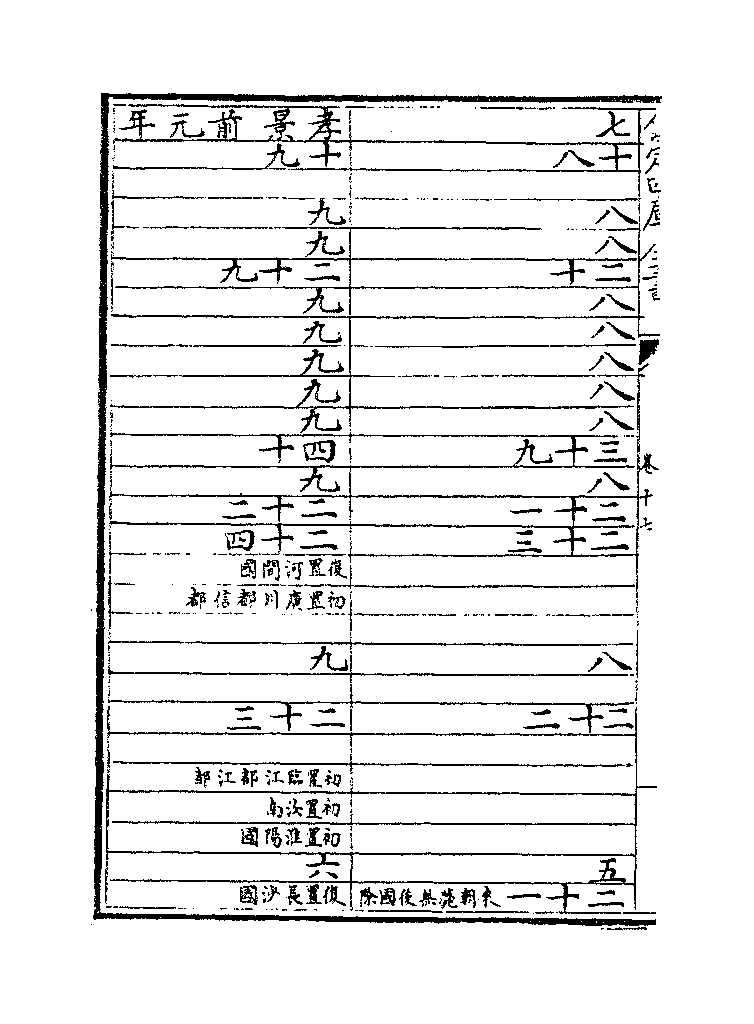 欽定四庫全書
卷十七
七
十八
八
八
二十
八
八
八
八
八
三十九
八
二十一
二十三
八
二十二
五
二十一 來朝薨無後國除
孝景前元年
十九
九
九
二十九
九
九
九
九
九
四十
九
二十二
二十四
復置河間國
初置廣川都信都
九
二十三
初置臨江都江都
初置汝南
初置淮陽國
六
復置長沙國